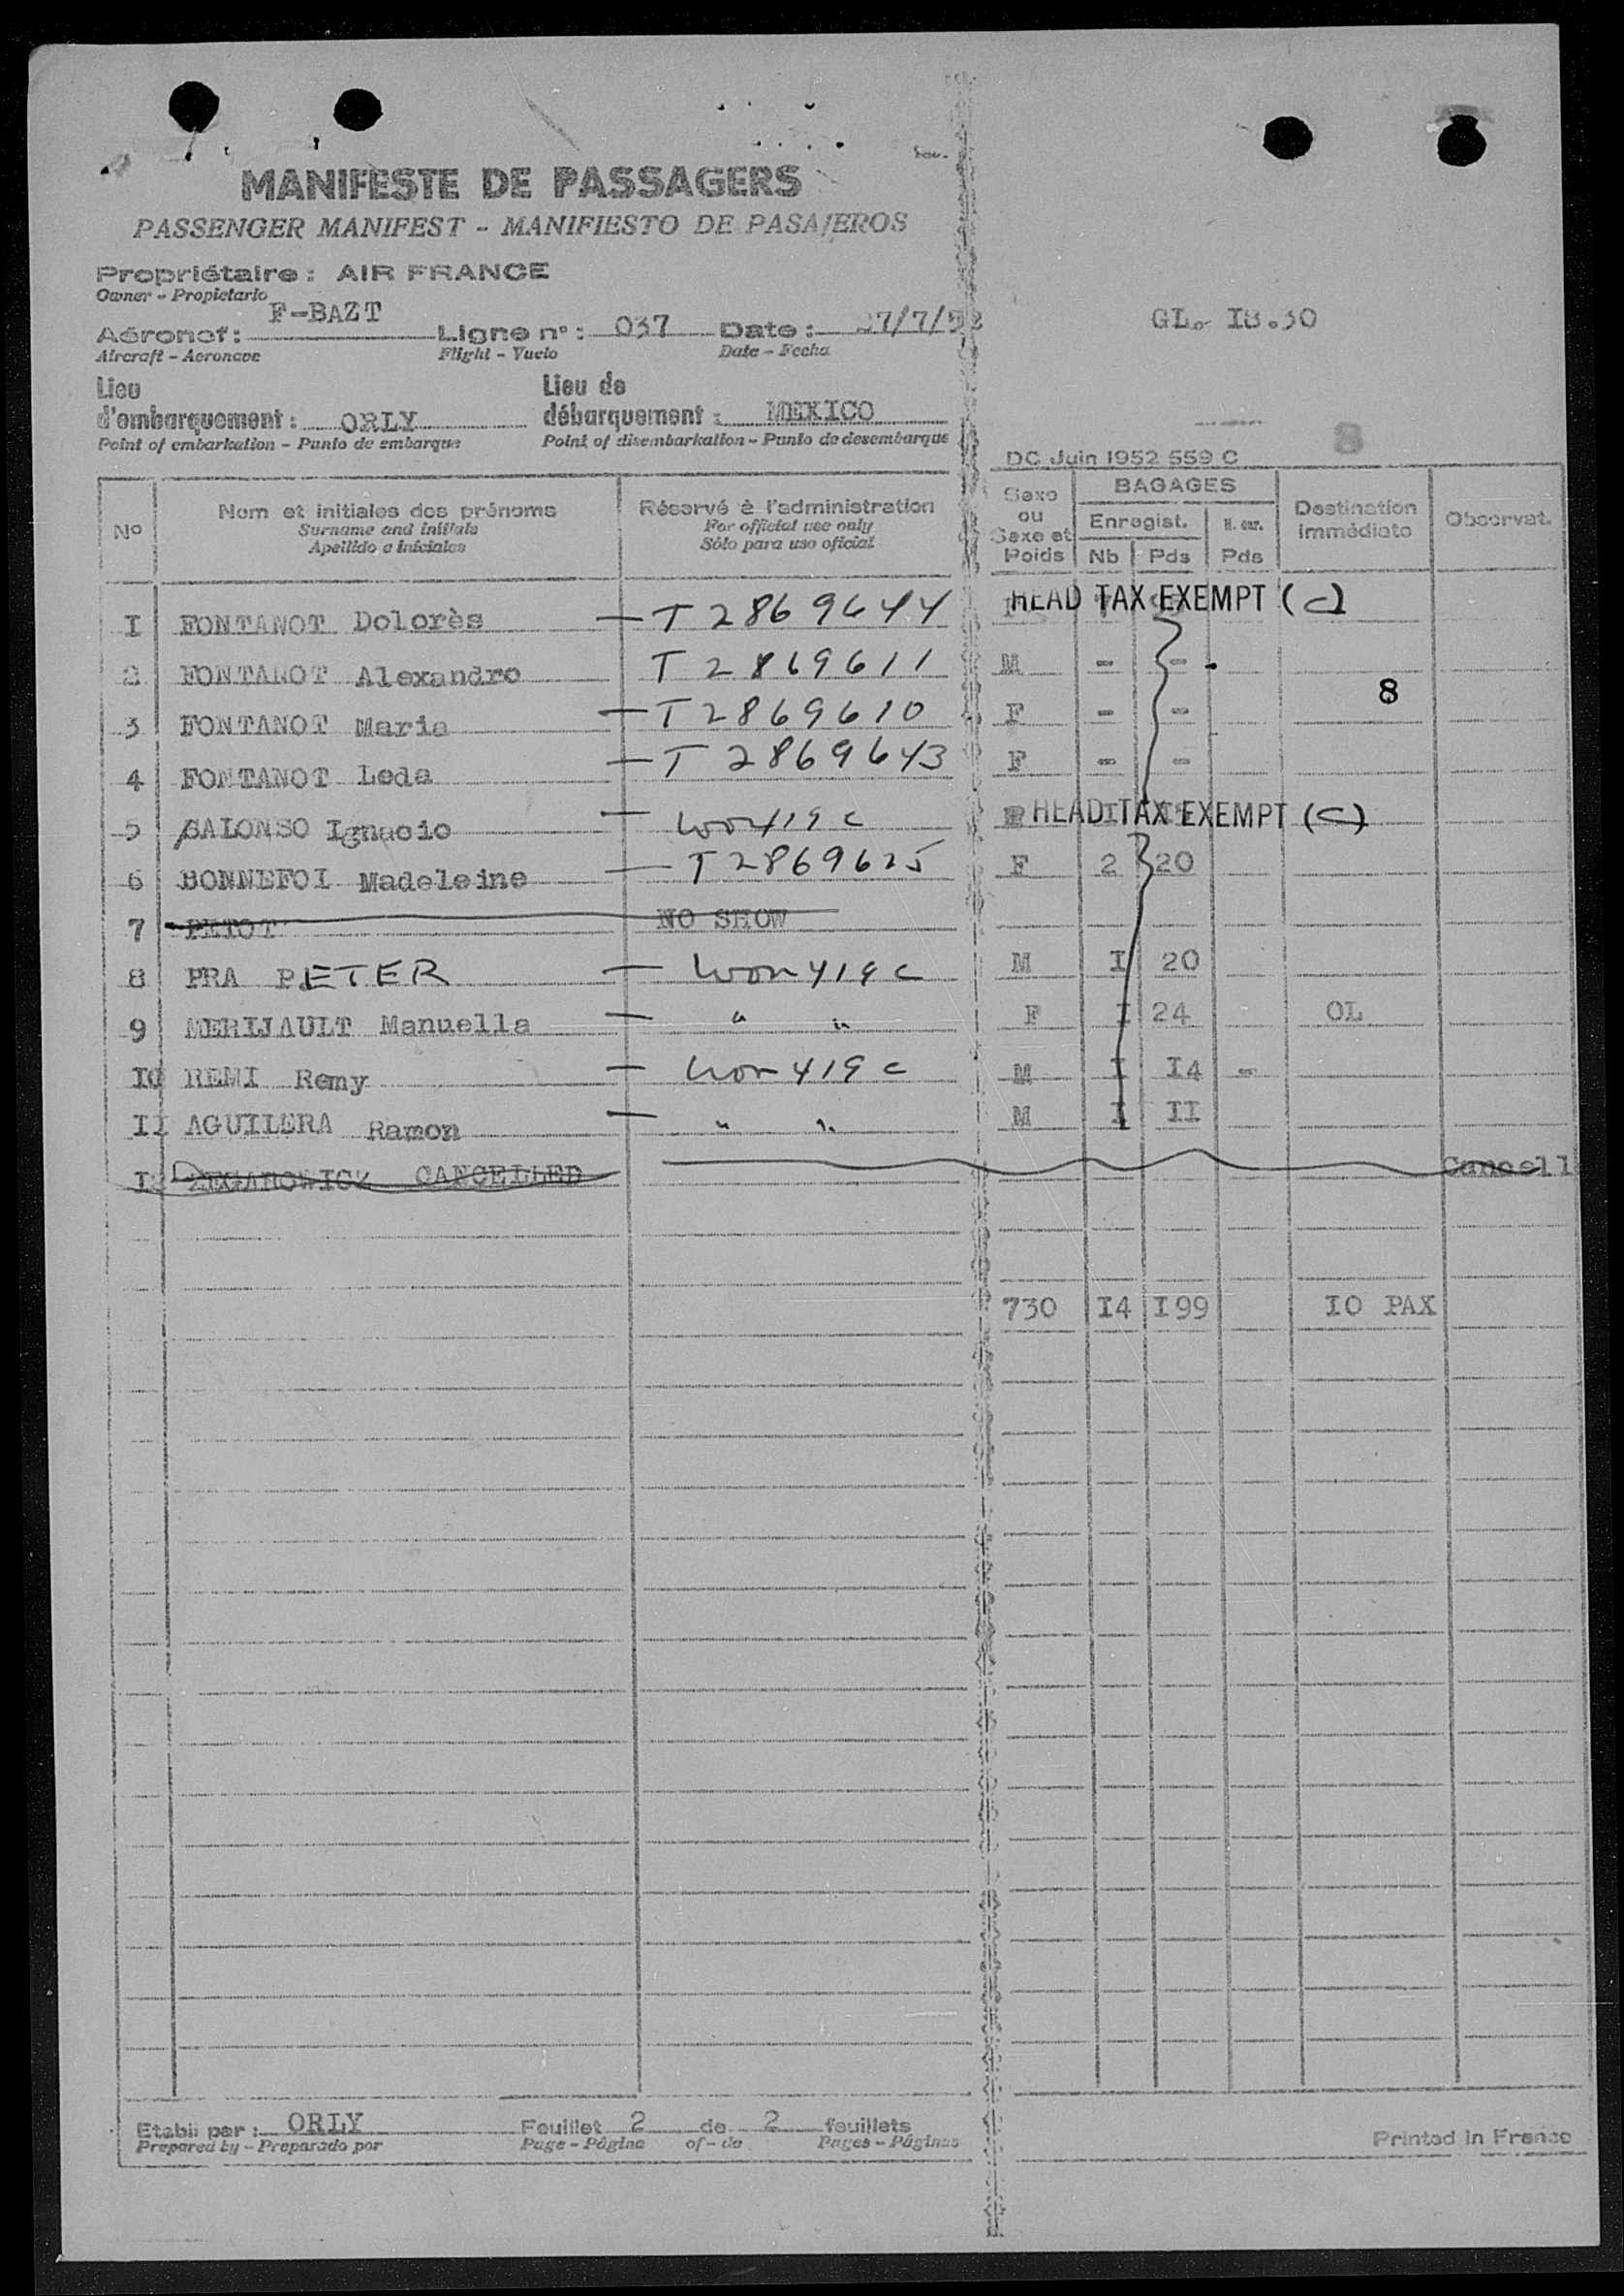 MANIFESTE DE PASSAGERS
PASSENGER MANIFEST - MANIFIESTO DE PASAJEROS
Propriétaire : AIR FRANCE
Owner - Propietario
F-BAZT
Aéronef : Ligne n° : 037 Date : 27/7/52 GL. I8.30
Aircraft - Aeronave Flight - Vuelo Date - Fecha
Lieu Lieu de
d'embarquement : ORLY débarquement : MEXICO
Point of embarkation - Punto de embarque Point of disembarkation - Punto de desembarque
DC Juin 1952 559 C 8
Nº Nom et initiales des prénoms Réservé à l'administration Sexe ou Sexe et Poids BAGAGES Destination immédiate Observat.
Surname and initials For official use only Enregist. H. enr.
Apellido e iniciales Sólo para uso oficial Nb Pds Pds
I FONTANOT Dolorès — T 2869644 HEAD TAX EXEMPT (C)
2 FONTANOT Alexandro T 2869611 M - -
8
3 FONTANOT Maria — T 2869610 F - -
4 FONTANOT Leda — T 2869643 F - -
5 SALONSO Ignacio — 419 c HEAD TAX EXEMPT (C)
6 BONNEFOI Madeleine — T 2869625 F 2 20
7 PETOT NO SHOW
8 PRA PETER — 419 c M I 20
9 MERIJAULT Manuella — " " F I 24 OL
IO REMI Remy — 419 c M I I4 -
II AGUILERA Ramon — " " M I II
I2 CANCELLED Cancell
730 I4 I99 IO PAX
Etabli par : ORLY Feuillet 2 de 2 feuillets
Prepared by - Preparado por Page - Página of - de Pages - Páginas
Printed in France